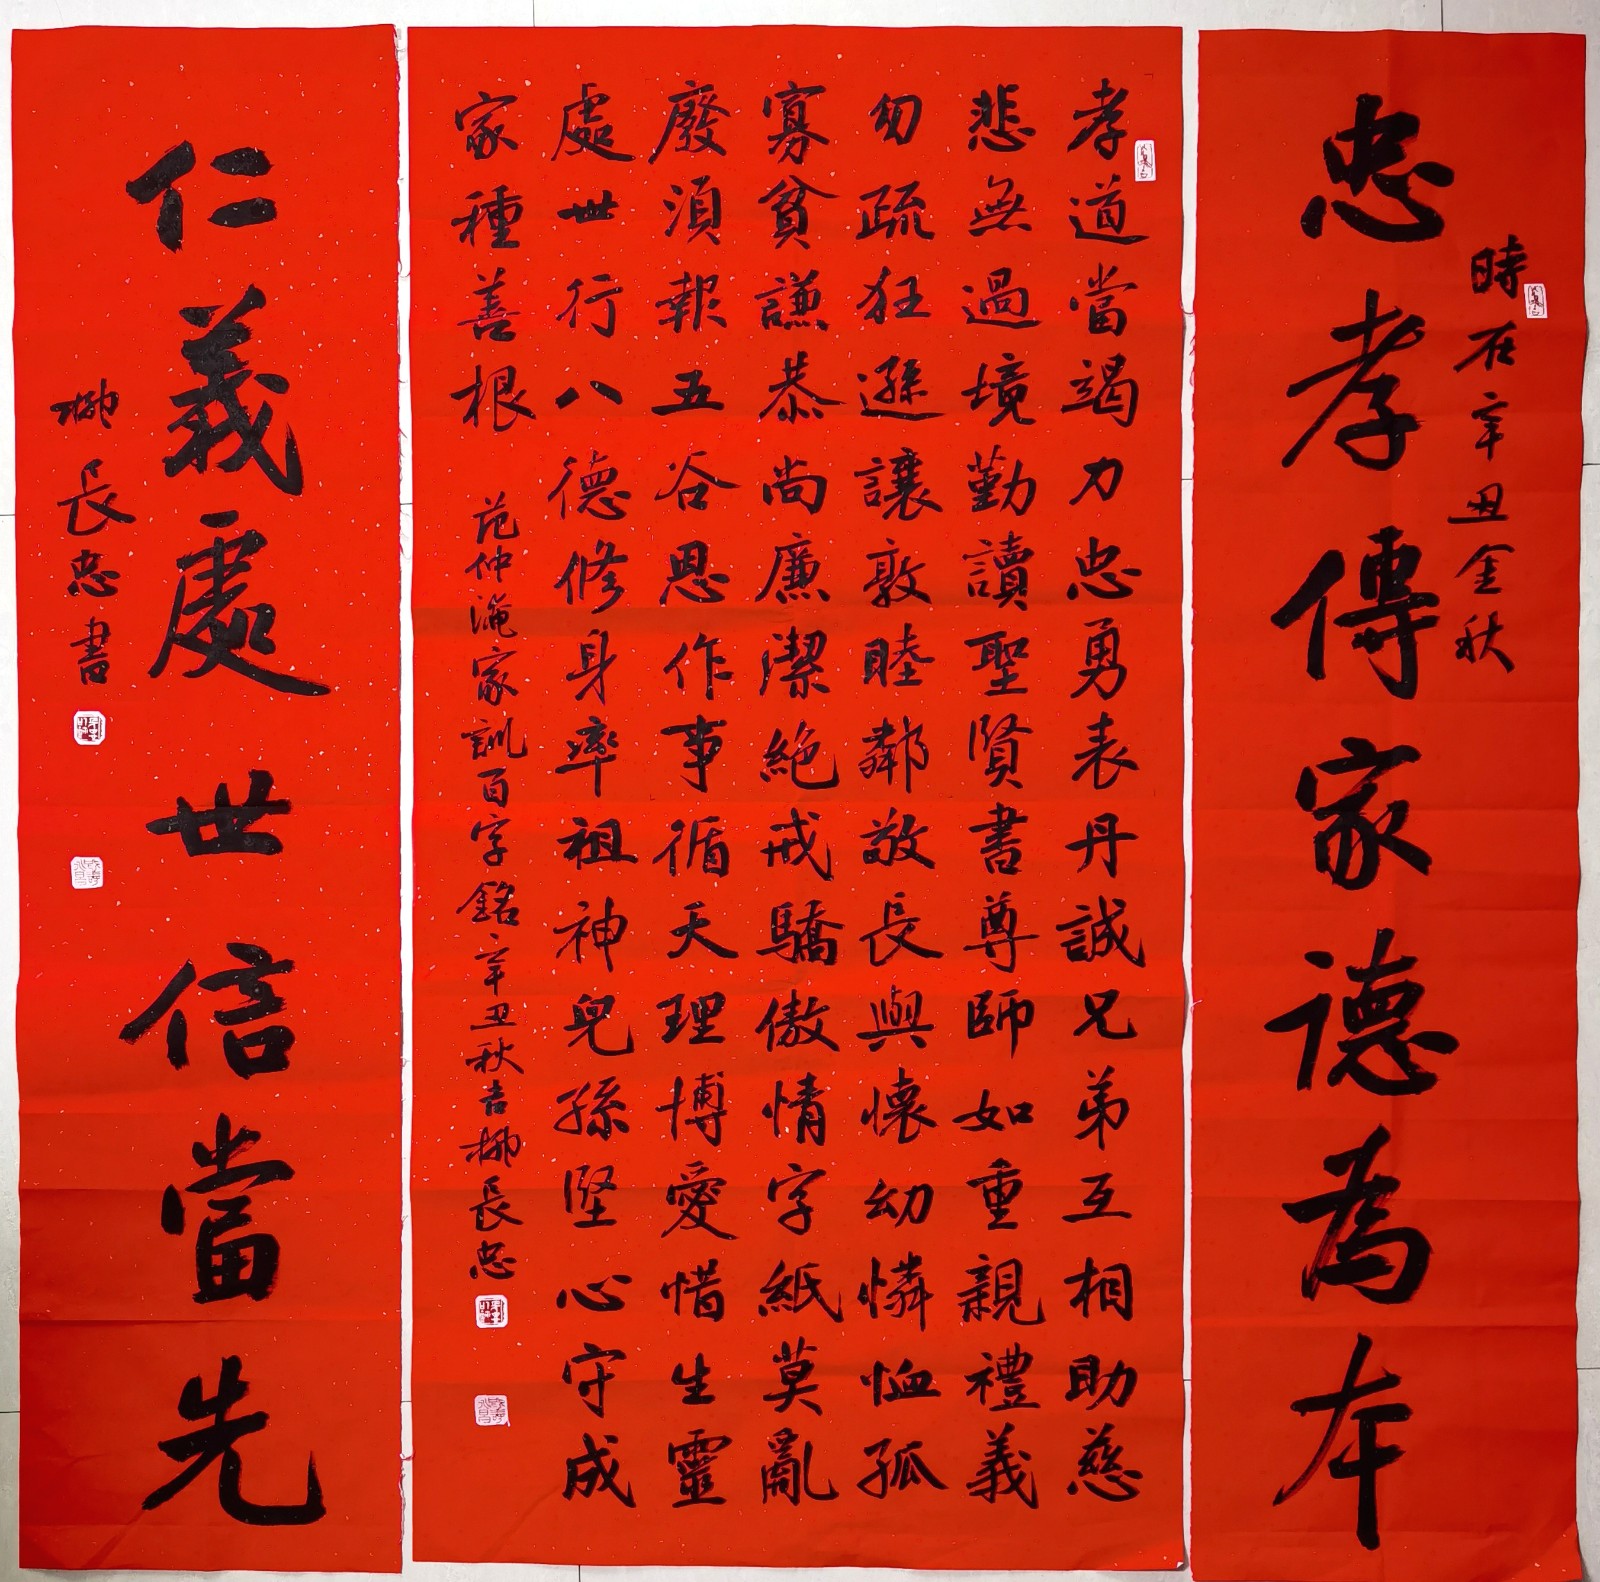 時在辛丑金秋
忠孝傳家德為本
孝道當竭力忠勇表丹誠兄弟互相助慈
悲無過境勤讀聖賢書尊師如重親禮義
勿疏狂遜讓敦睦鄰敬長與懷幼憐恤孤
寡貧謙恭尚廉潔絶戒驕傲情字紙莫亂
廢須報五谷恩作事循天理博愛惜生靈
處世行八德修身率祖神兒孫堅心守成
家種善根
范仲淹家訓百字銘辛丑秋吉柳長忠
仁義處世信當先
柳長忠書